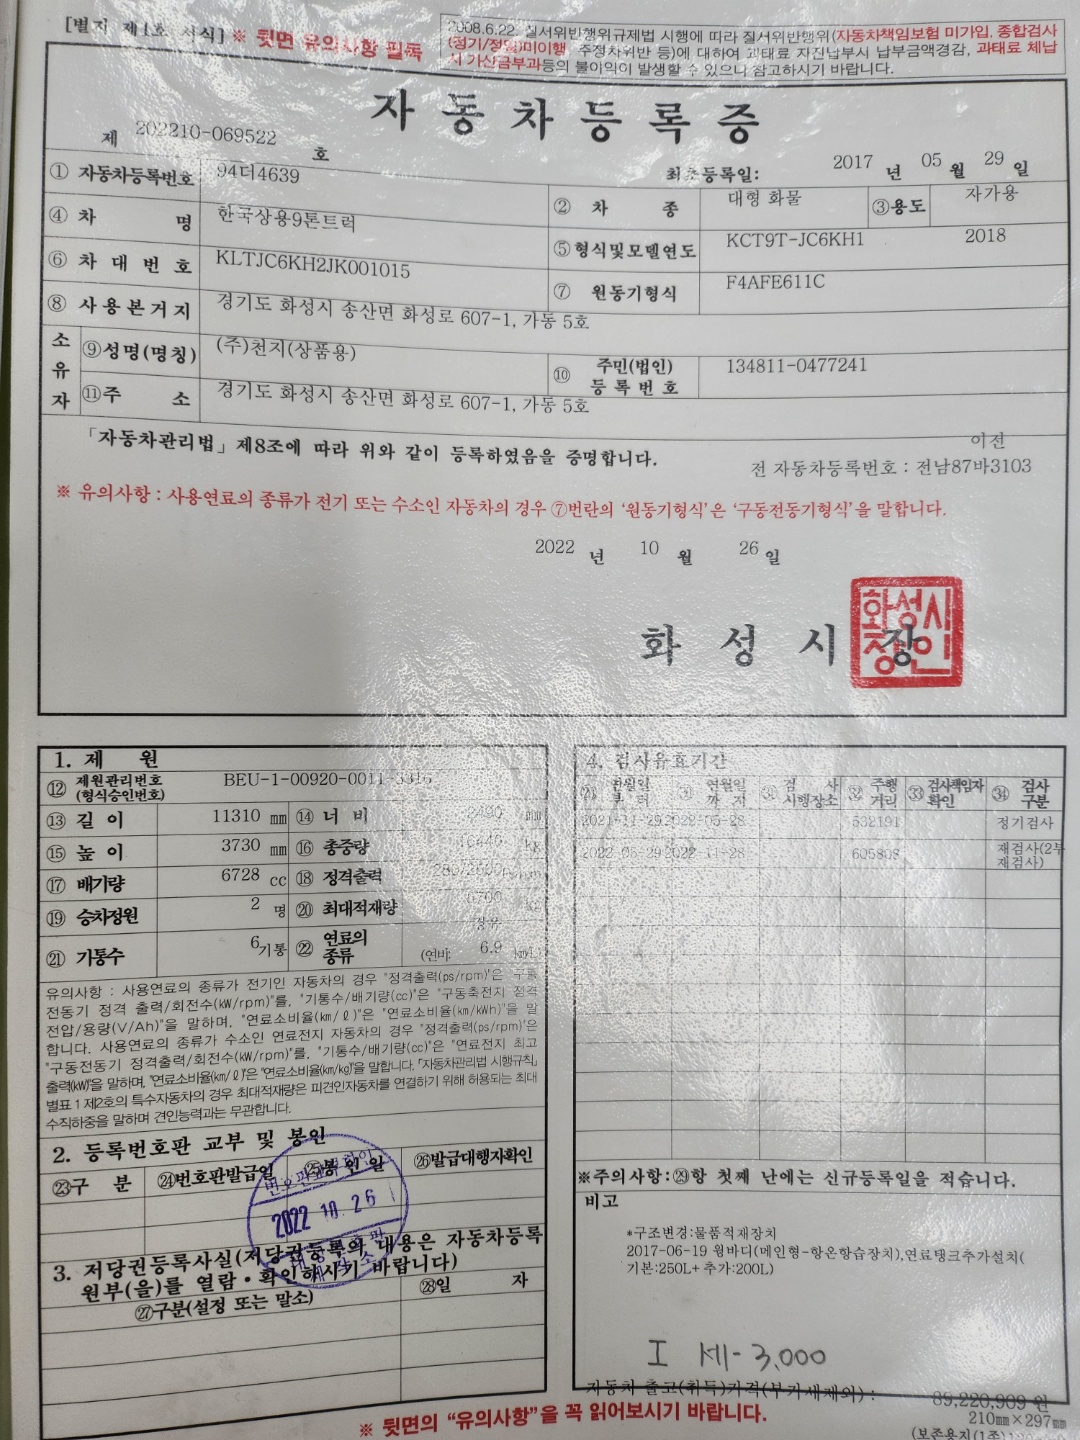 [별지 제1호 서식] ※ 뒷면 유의사항 필독
2008.6.22. 질서위반행위규제법 시행에 따라 질서위반행위(자동차책임보험 미가입, 종합검사
(정기/정밀)미이행, 주정차위반 등)에 대하여 과태료 자진납부시 납부금액경감, 과태료 체납
시 가산금부과등의 불이익이 발생할 수 있으니 참고하시기 바랍니다.
자 동 차 등 록 증
제 202210-069522 호
최초등록일: 2017 년 05 월 29 일
① 자동차등록번호 94더4639 ② 차 종 대형 화물 ③용도 자가용
④ 차 명 한국상용9톤트럭 ⑤ 형식및모델연도 KCT9T-JC6KH1 2018
⑥ 차 대 번 호 KLTJC6KH2JK001015 ⑦ 원동기형식 F4AFE611C
⑧ 사 용 본 거 지 경기도 화성시 송산면 화성로 607-1, 가동 5호
소유자 ⑨성명(명칭) (주)천지(상품용) ⑩ 주민(법인)등록번호 134811-0477241
⑪주 소 경기도 화성시 송산면 화성로 607-1, 가동 5호
「자동차관리법」 제8조에 따라 위와 같이 등록하였음을 증명합니다.
이전
전 자동차등록번호 : 전남87바3103
※ 유의사항 : 사용연료의 종류가 전기 또는 수소인 자동차의 경우 ⑦번란의 '원동기형식'은 '구동전동기형식'을 말합니다.
2022 년 10 월 26 일
화 성 시 장
화성시장인
1. 제 원
⑫ 제원관리번호 (형식승인번호) BEU-1-00920-0011-
⑬ 길 이 11310 mm ⑭ 너 비 2490 mm
⑮ 높 이 3730 mm ⑯ 총중량 kg
⑰ 배기량 6728 cc ⑱ 정격출력
⑲ 승차정원 2 명 ⑳ 최대적재량
㉑ 기통수 6기통 ㉒ 연료의 종류 (연비: 6.9
유의사항 : 사용연료의 종류가 전기인 자동차의 경우 "정격출력(ps/rpm)"은 구동
전동기 정격 출력/회전수(kW/rpm)"를, "기통수/배기량(cc)"은 "구동축전지 정격
전압/용량(V/Ah)"을 말하며, "연료소비율(km/ℓ)"은 "연료소비율(km/kWh)"을 말
합니다. 사용연료의 종류가 수소인 연료전지 자동차의 경우 "정격출력(ps/rpm)"은
"구동전동기 정격출력/회전수(kW/rpm)"를, "기통수/배기량(cc)"은 "연료전지 최고
출력(kW)"을 말하며, "연료소비율(km/ℓ)"은 "연료소비율(km/kg)"을 말합니다. 「자동차관리법 시행규칙」
별표 1 제2호의 특수자동차의 경우 최대적재량은 피견인자동차를 연결하기 위해 허용되는 최대
수직하중을 말하며 견인능력과는 무관합니다.
2. 등록번호판 교부 및 봉인
㉓구 분 ㉔번호판발급일 ㉕봉 인 일 ㉖발급대행자확인
2022 10. 26
3. 저당권등록사실(저당권등록의 내용은 자동차등록
원부(을)를 열람·확인하시기 바랍니다)
㉗구분(설정 또는 말소) ㉘일 자
4. 검사유효기간
㉙ 연월일부터 ㉚ 연월일까지 ㉛ 검사시행장소 ㉜ 주행거리 ㉝ 검사책임자확인 ㉞ 검사구분
2021-11-29 2022-05-28 532191 정기검사
2022-05-29 2022-11-28 605808 재검사(2부
재검사)
※주의사항:㉙항 첫째 난에는 신규등록일을 적습니다.
비고
*구조변경:물품적재장치
2017-06-19 윙바디(메인형-항온항습장치),연료탱크추가설치(
기본:250L+ 추가:200L)
I 세- 3,000
자동차 출고(취득)가격(부가세제외) : 89,220,909 원
210㎜×297㎜
(보존용지(1종)
※ 뒷면의 "유의사항"을 꼭 읽어보시기 바랍니다.